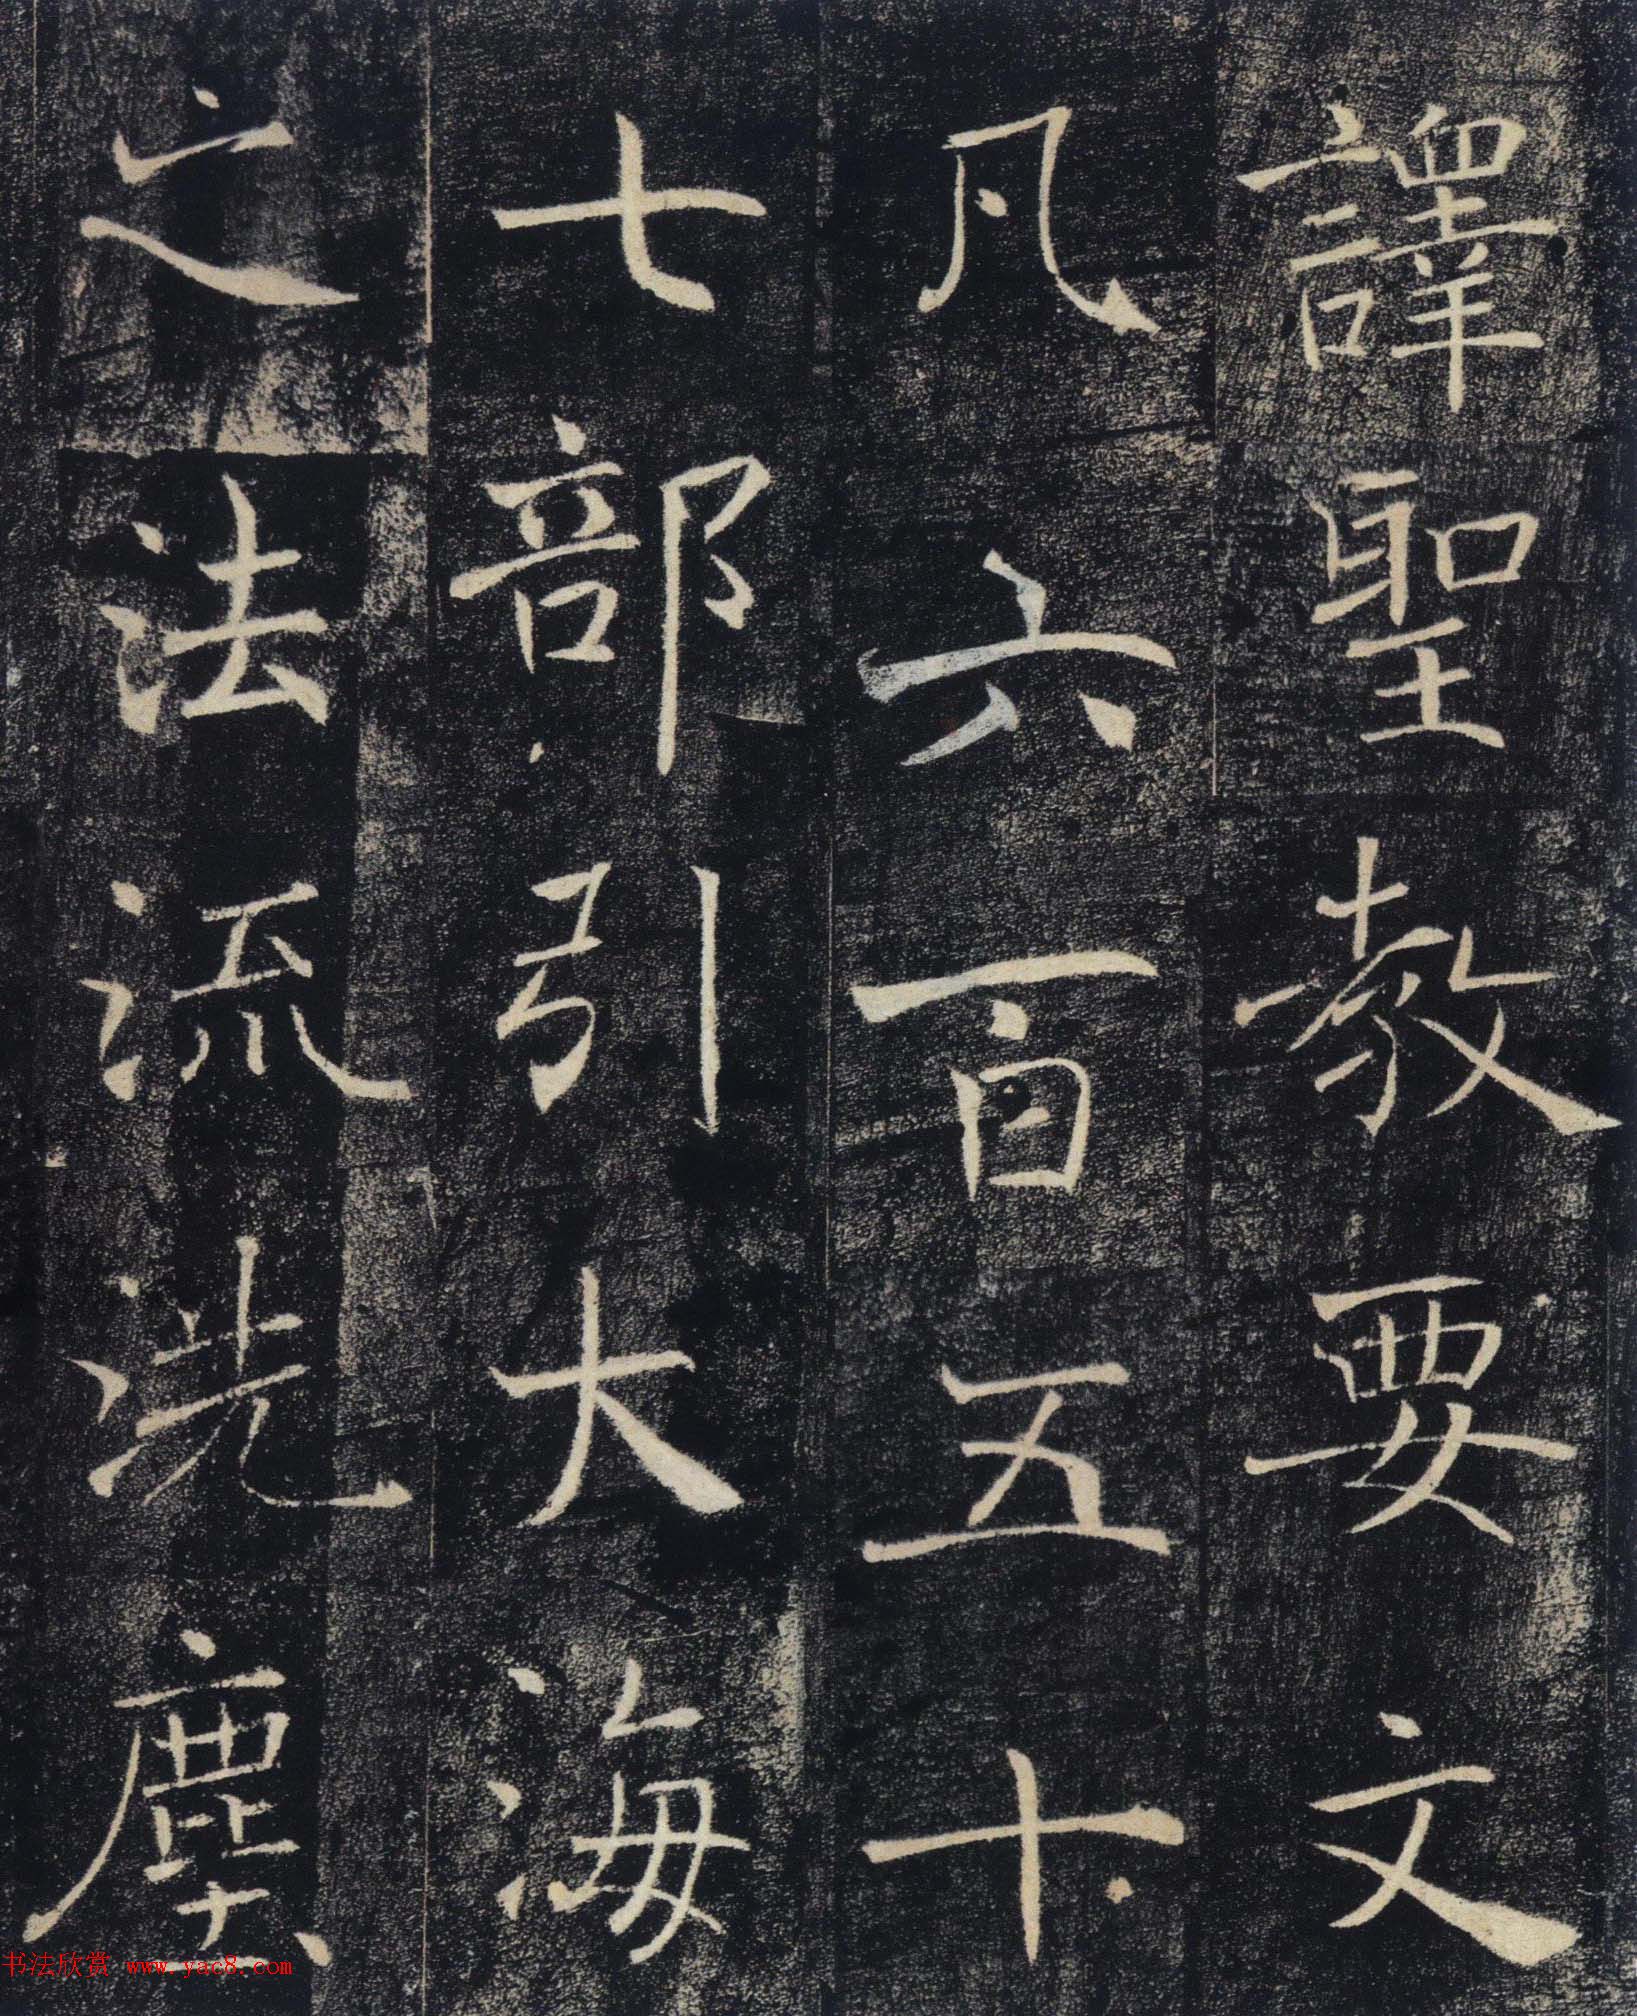 譯聖教要文
凡六百五十
七部引大海
之法流洗塵
书法欣赏 www.yac8.com